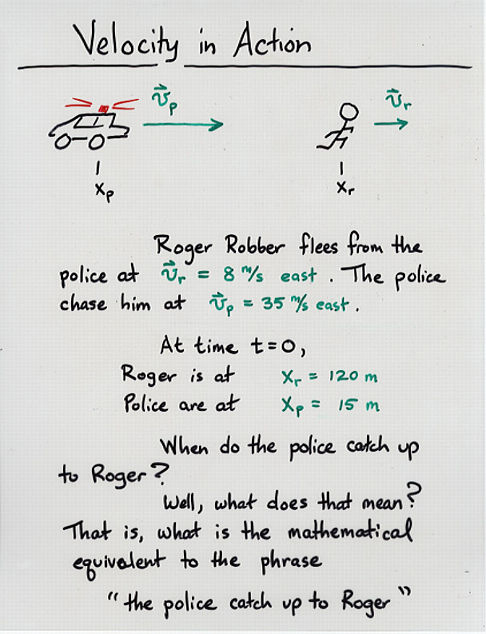 Velocity in Action
v⃗p
v⃗r
xp
xr
Roger Robber flees from the
police at v⃗r = 8 m/s east . The police
chase him at v⃗p = 35 m/s east .
At time t=0,
Roger is at xr = 120 m
Police are at xp = 15 m
When do the police catch up
to Roger?
Well, what does that mean?
That is, what is the mathematical
equivalent to the phrase
"the police catch up to Roger"